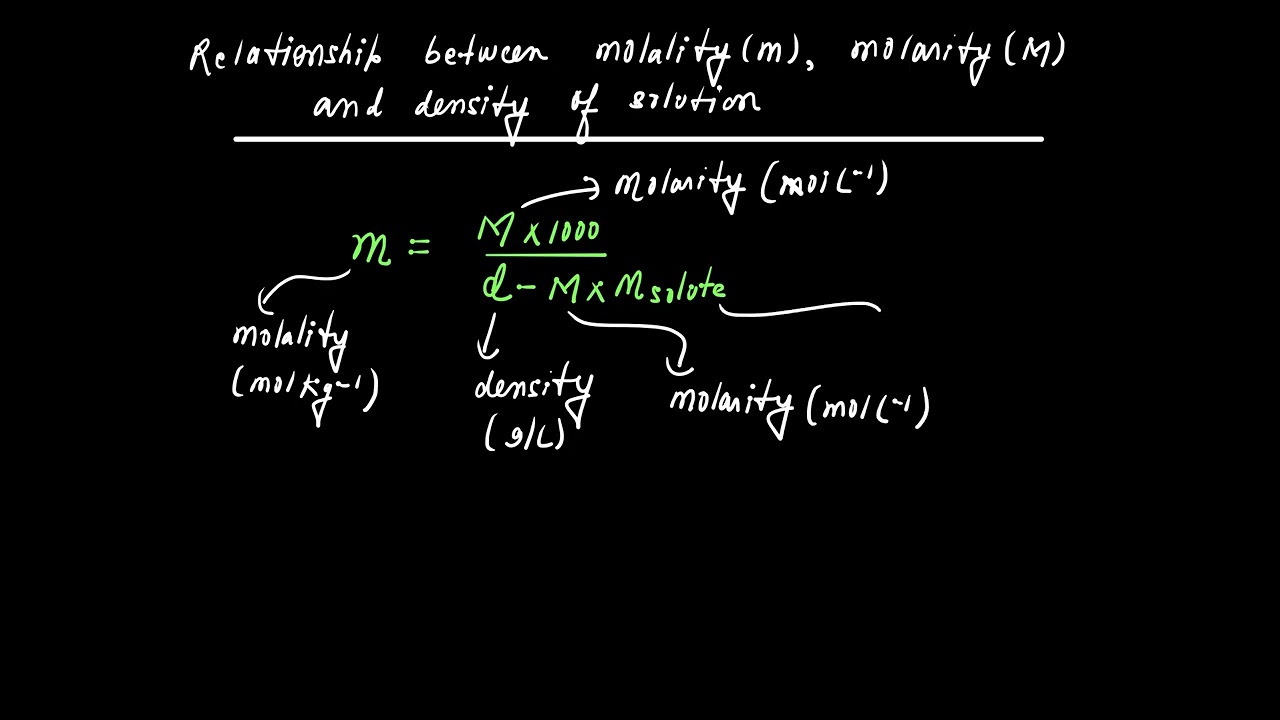 Relationship between molality (m), molarity (M)
and density of solution
molarity (mol L⁻¹)
m = M × 1000 / d - M × Msolute
molality
(mol kg⁻¹)
density
(g/L)
molarity (mol L⁻¹)